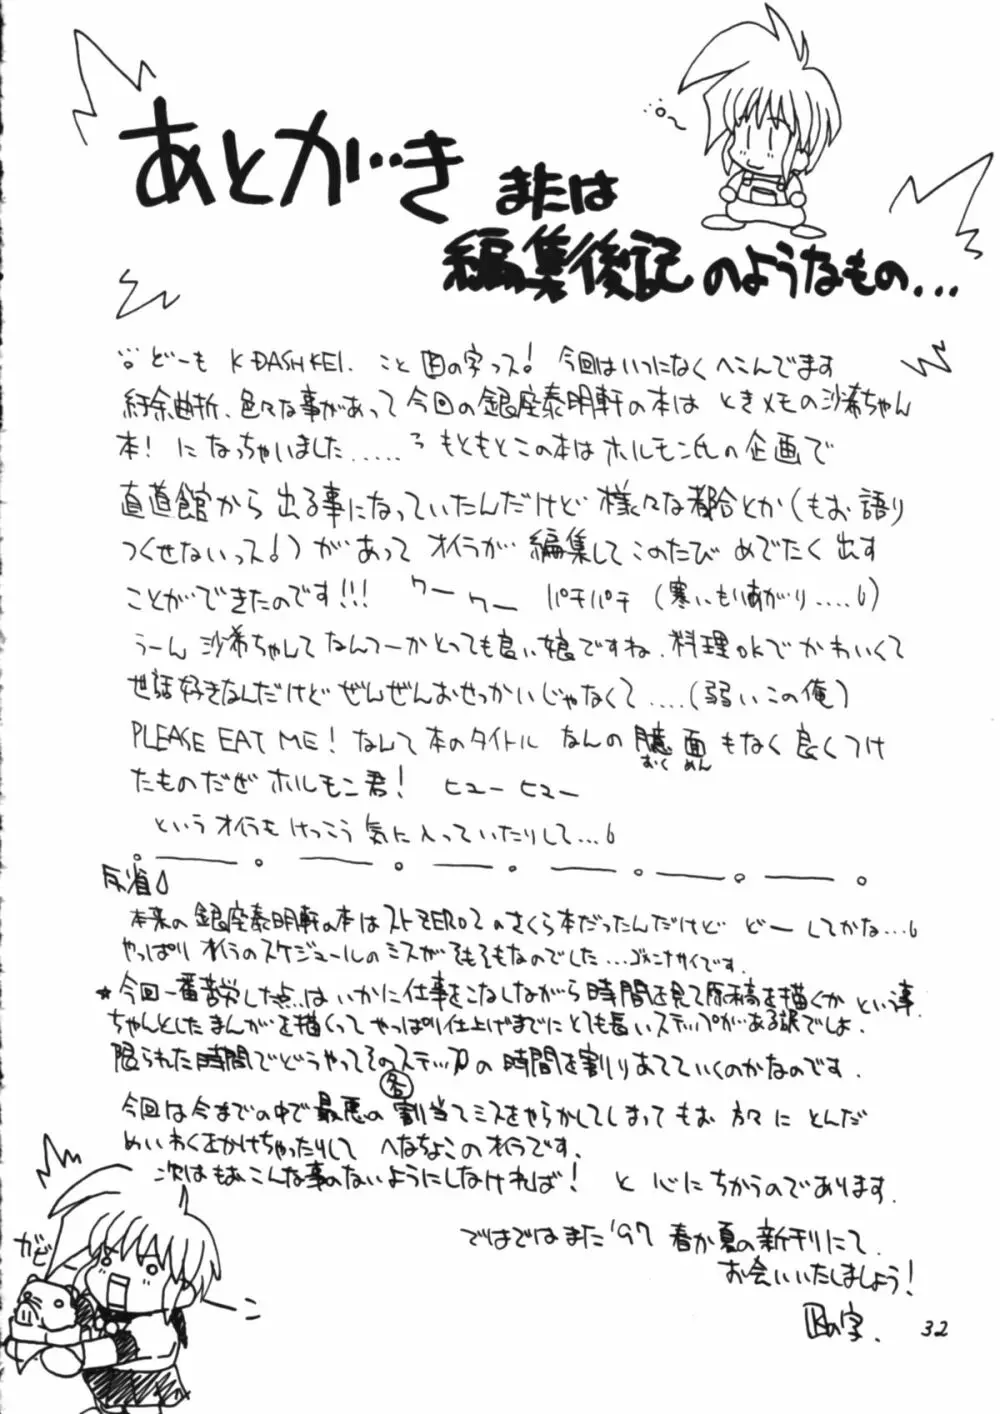 あとがき または
編集後記のようなもの...
どーも K-DASH KEI. こと 因の字っス! 今回はいつになくへこんでます
紆余曲折、色々な事があって今回の銀座泰明軒の本は ときメモの沙希ちゃん
本! になっちゃいました..... もともとこの本はホルモン氏の企画で
直道館から 出る事になっていたんだけど 様々な都合とか(もお語り
つくせないっス!)があって オイラが 編集してこのたび めでたく出す
ことができたのです!!! ワー ワー パチパチ (寒いもりあがり.....)
うーん 沙希ちゃんてなんつーかとっても良い娘ですね. 料理okでかわいくて
世話好きなんだけど ぜんぜんおせっかいじゃなくて....(弱いこの俺)
PLEASE EAT ME! なんて本のタイトル なんの臆面もなく良くつけ
おくめん
たものだぜ ホルモン君! ヒューヒュー
というオイラも けっこう気に入っていたりして...
反省
本来の銀座泰明軒の本はストZERO2のさくら本だったんだけど どーしてかな...
やっぱり オイラのスケジュールのミスがそもそもなのでした...ゴメンナサイです.
★今回一番苦労した点..は いかに仕事をこなしながら時間を見て原稿を描くか という事.
ちゃんとしたまんがを描くって やっぱり仕上げまでにとても長いステップがある訳でしょ.
限られた時間でどうやってその各ステップの時間を割りあてていくのかなのです.
今回は今までの中で最悪の割当てミスをやらかしてしまって もお 方々に とんだ
めいわくをかけちゃったりして へなちょこのオイラです.
次はもおこんな事のないようにしなければ! と 心にちかうのであります.
ではではまた '97 春か夏の新刊にて.
お会いいたしましょう!
の字. 32
ガビ